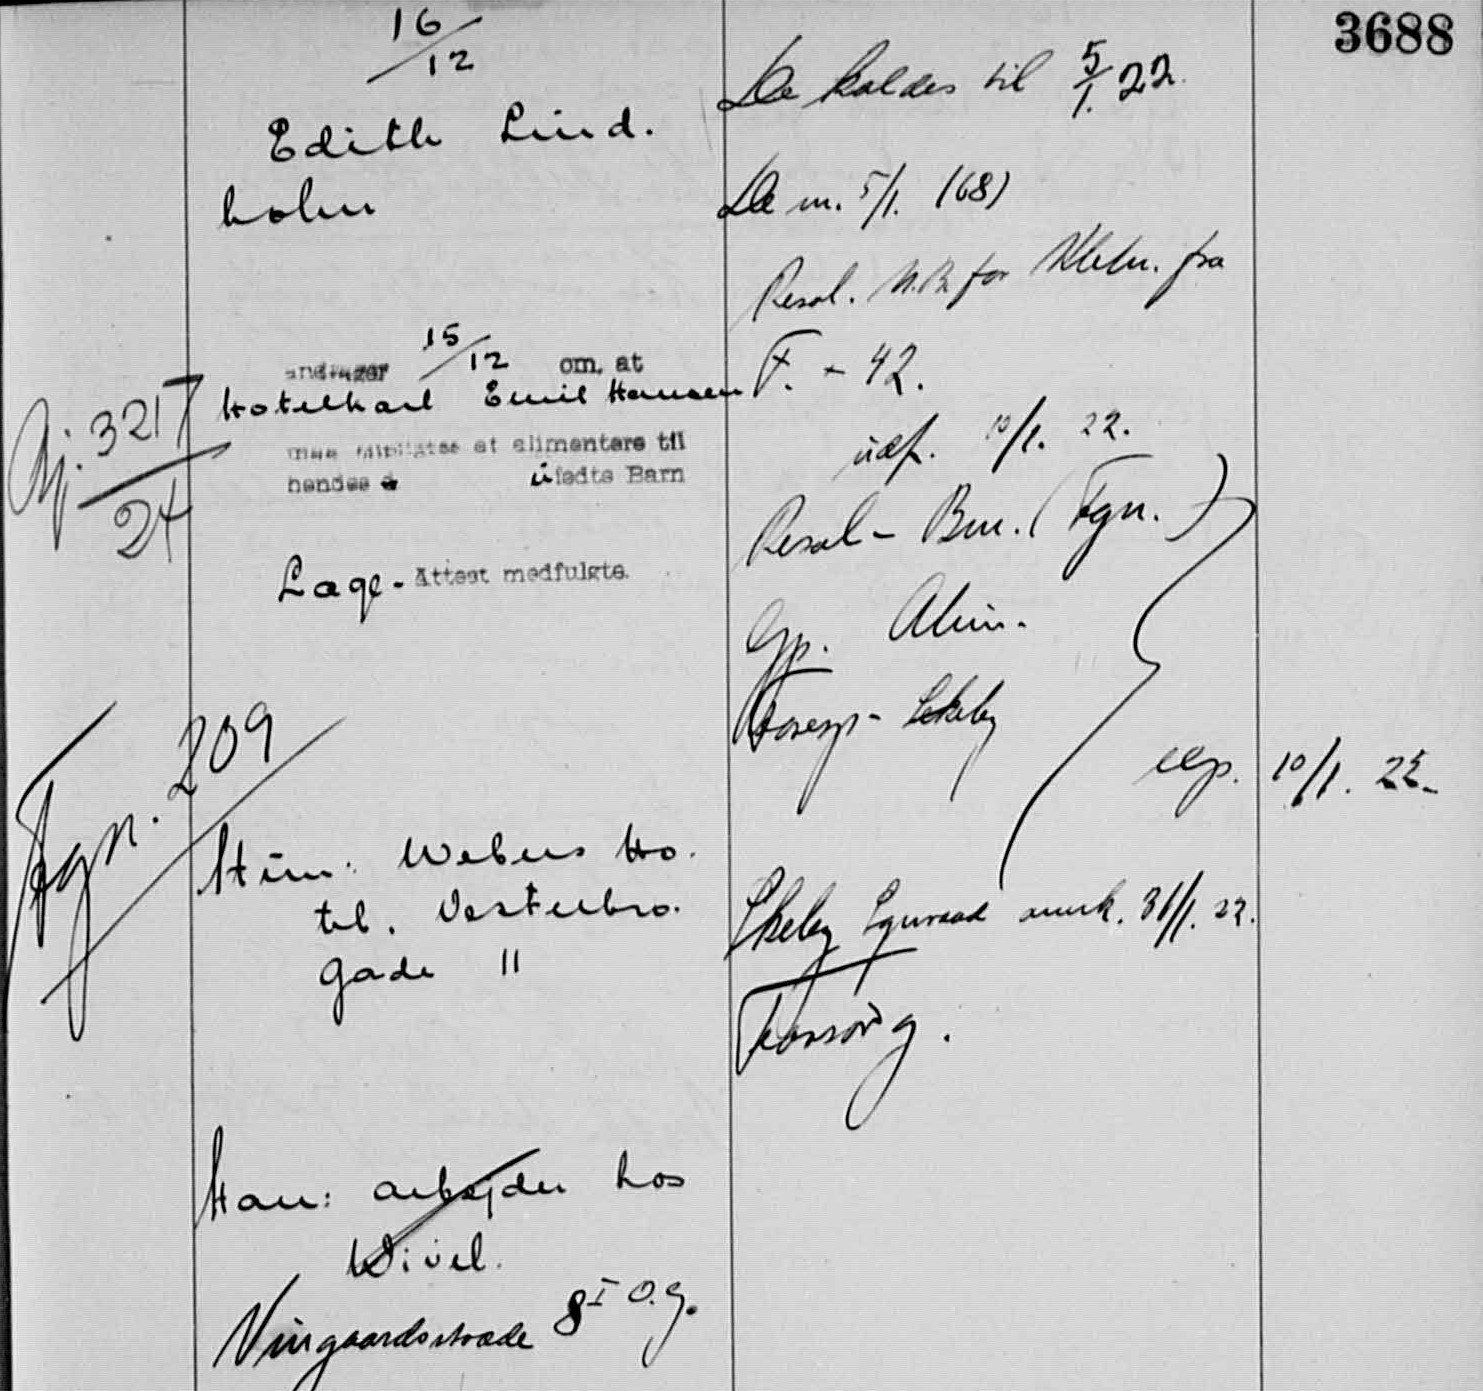 3688
16/12
Edith Lind.
holm
andrager 15/12 om, at
Hotelkarl Emil Hansen
maa tilpligtes at alimentere til
hendes ufødte Barn
Læge-Attest medfulgte.
Aj. 3217/24
Fgn. 209
Hun: Webers Ho.
tel. Vesterbro.
gade 11
Han: arbejder hos
Wivel.
Vingaardsstræde 8 I o.g.
De kaldes til 5/1. 22.
De m. 5/1. (68)
Resol. N.B. for fra
F. - 42.
udf. 10/1. 22.
Resol - Bm. (Fgn.)
Gp. Alim.
Foresp -
exp. 10/1. 22.
anerk. 31/1. 22.
Forsørg.